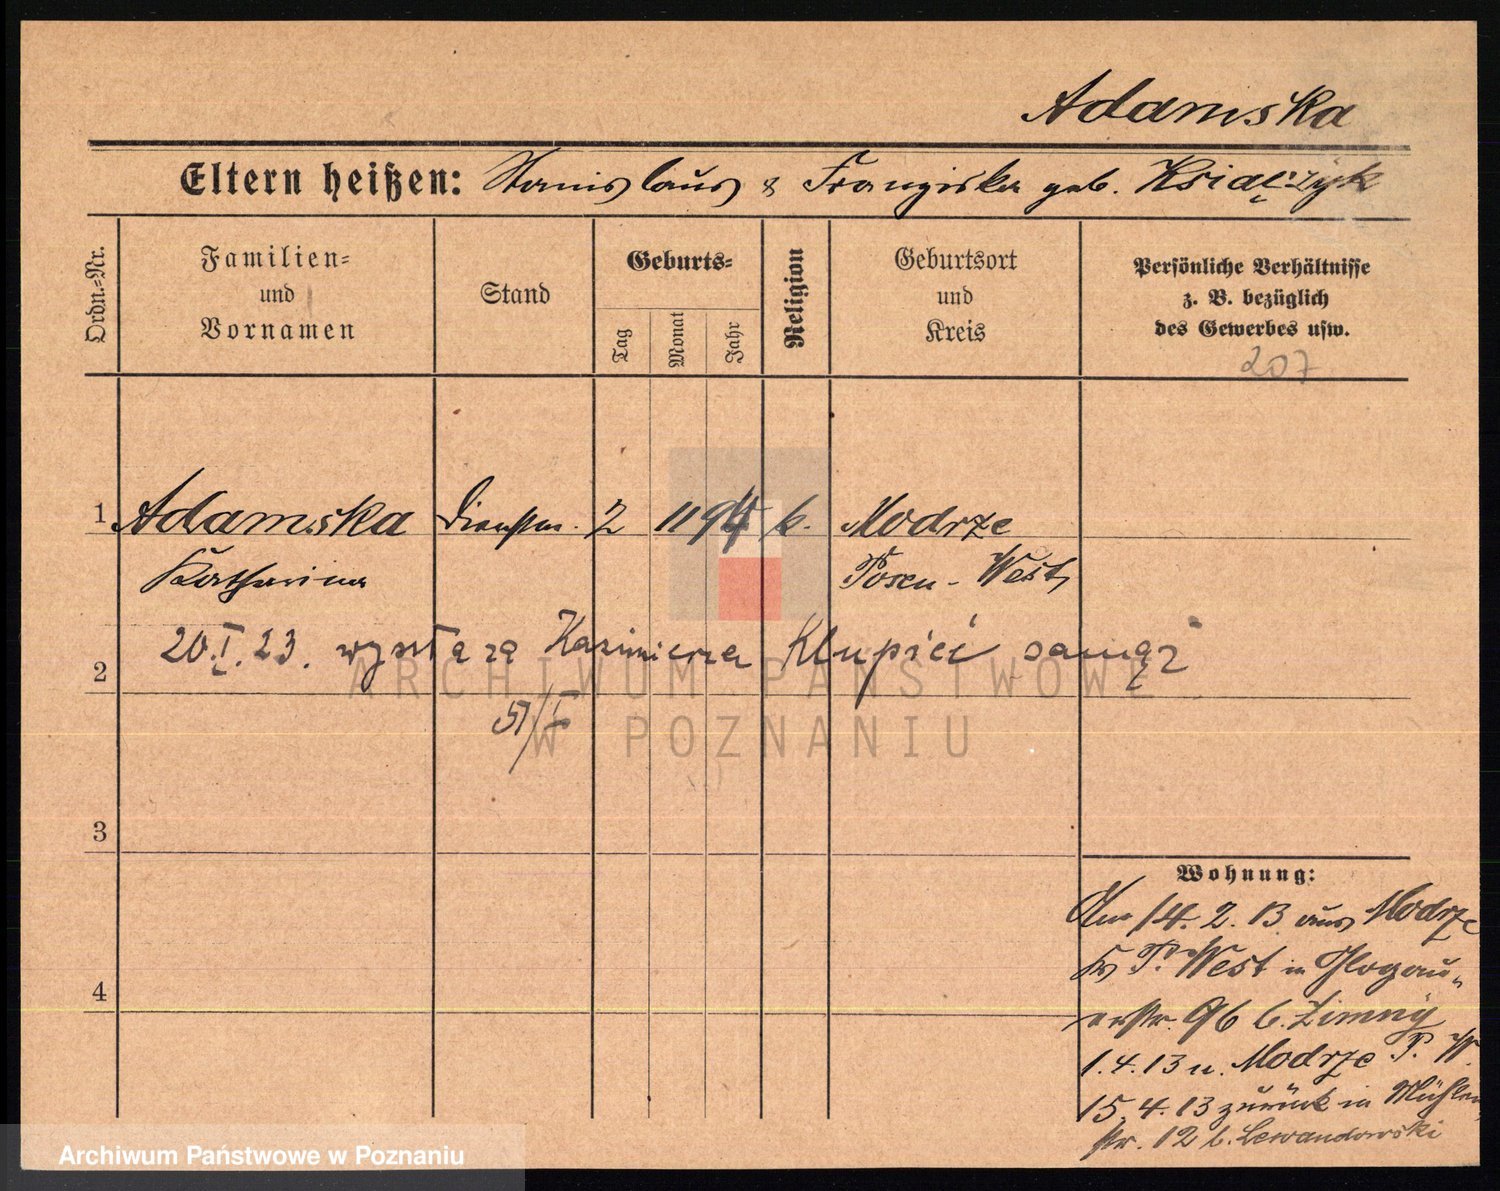 Adamska
Eltern heißen: Stanislaus & Franziska geb. Książczyk
Ordn.-Nr.
Familien-
und
Vornamen
Stand
Geburts-
Tag
Monat
Jahr
Religion
Geburtsort
und
Kreis
Persönliche Verhältnisse
z. B. bezüglich
des Gewerbes usw.
207
1 Adamska Dienstm. 2 11 94 k. Modrze
Katharina Posen-West
2 20.I.23. Kazimierza
3
4
Wohnung:
Am 14.2.13 aus Modrze
Kr P. West in Glogau-
erstr. 96 b. Zimny
1.4.13 n. Modrze P. W.
15.4.13 zurück in Mühlen
str. 12 b. Lewandowski
ARCHIWUM PAŃSTWOWE
W POZNANIU
Archiwum Państwowe w Poznaniu